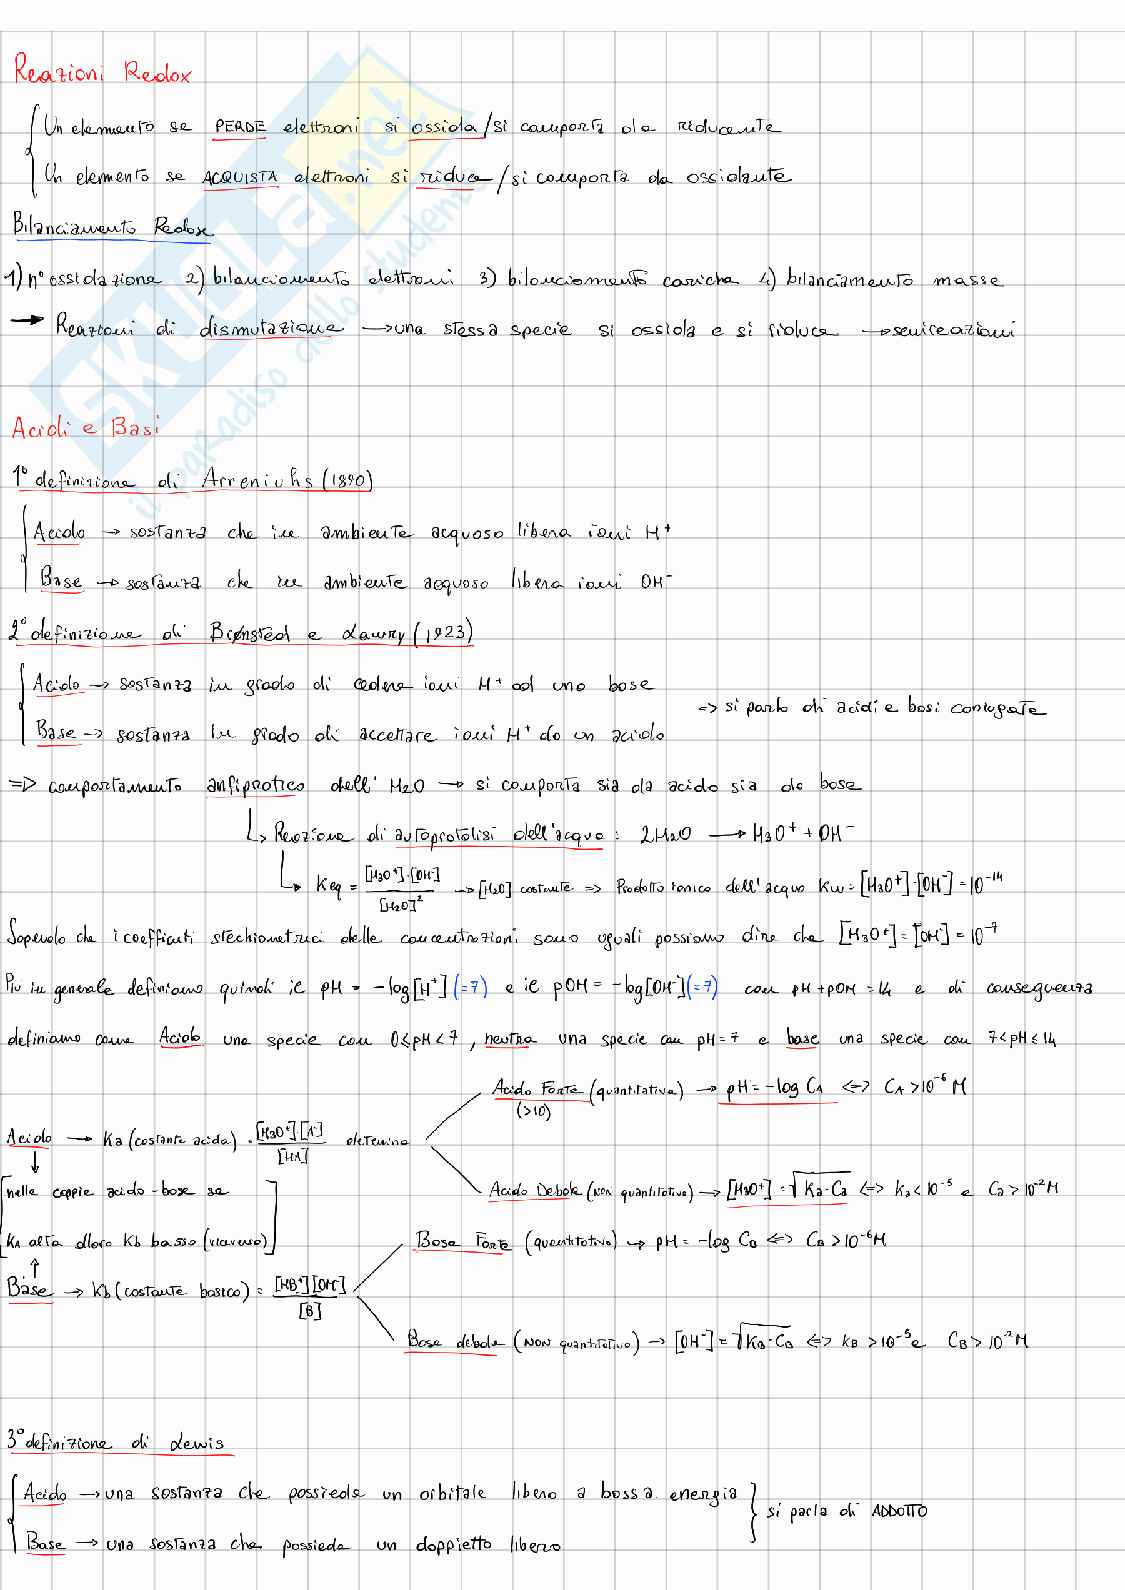 Reazioni Redox
Un elemento se PERDE elettroni si ossida/si comporta da riducente
Un elemento se ACQUISTA elettroni si riduce/si comporta da ossidante
Bilanciamento Redox
1) n° ossidazione 2) bilanciamento elettroni 3) bilanciamento cariche 4) bilanciamento masse
→ Reazioni di dismutazione → una stessa specie si ossida e si riduce → semireazioni
SKUOLA.net
il paradiso dello studente
Acidi e Basi
1° definizione di Arreniuhs (1890)
Acido → sostanza che in ambiente acquoso libera ioni H⁺
Base → sostanza che in ambiente acquoso libera ioni OH⁻
2° definizione di Brønsted e Lawry (1923)
Acido → sostanza in grado di cedere ioni H⁺ ad una base
Base → sostanza in grado di accettare ioni H⁺ da un acido
=> si parla di acidi e basi coniugate
=> comportamento anfiprotico dell' H2O → si comporta sia da acido sia da base
↳ Reazione di autoprotolisi dell'acqua: 2H2O → H3O⁺ + OH⁻
↳ Keq = [H3O⁺]·[OH⁻] / [H2O]² → [H2O] costante => Prodotto ionico dell'acqua Kw = [H3O⁺]·[OH⁻] = 10⁻¹⁴
Sapendo che i coefficenti stechiometrici delle concentrazioni sono uguali possiamo dire che [H3O⁺] = [OH⁻] = 10⁻⁷
Piu in generale definiamo quindi il pH = -log[H⁺] (=7) e il pOH = -log[OH⁻] (=7) con pH + pOH = 14 e di conseguenza
definiamo come Acido una specie con 0≤pH<7, neutra una specie con pH=7 e base una specie con 7<pH≤14
Acido Forte (quantitativa) → pH = -log CA <=> CA > 10⁻⁶ M
(>10)
Acido → Ka (costante acida) = [H3O⁺][A⁻] / [HA] determina
Acido Debole (NON quantitativa) → [H3O⁺] = √Ka·Ca <=> Ka < 10⁻⁵ e Ca > 10⁻² M
[nelle coppie acido-base se
KA alta allora Kb bassa (viceversa)]
Base Forte (quantitativa) → pH = -log CB <=> CB > 10⁻⁶ M
Base → Kb (costante basica) = [HB⁺][OH⁻] / [B]
Base debole (NON quantitativa) → [OH⁻] = √KB·CB <=> KB > 10⁻⁵ e CB > 10⁻² M
3° definizione di Lewis
Acido → una sostanza che possieda un orbitale libero a bassa energia
Base → una sostanza che possieda un doppietto libero
si parla di ADDOTTO